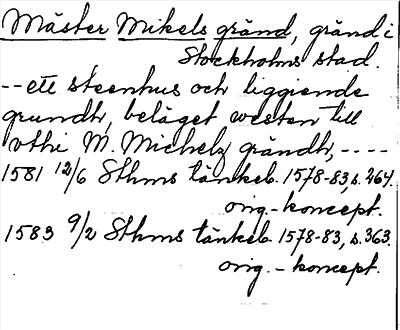 Mäster Mikels gränd, gränd i
Stockholms stad.
-- ett steenhus och liggiende
grundh, beläget westen till
vthi M. Michelz grändh, ----
1581 12/6 Sthms tänkeb. 1578-83, s. 264.
orig.-koncept.
1583 9/2 Sthms tänkeb. 1578-83, s. 363.
orig.-koncept.